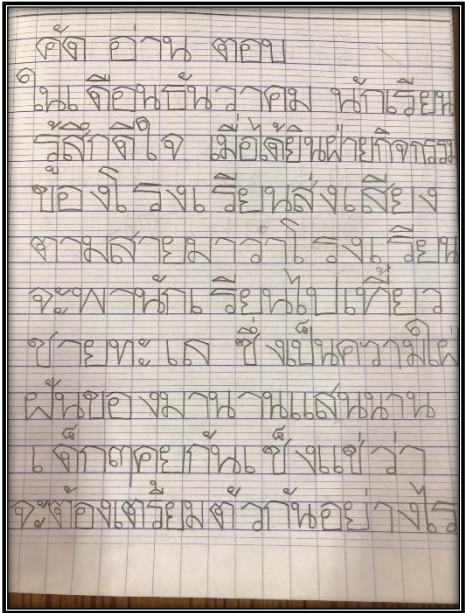 คัด อ่าน ตอบ
ในเดือนธันวาคม นักเรียน
รู้สึกดีใจ เมื่อได้ยินฝ่ายกิจกรรม
ของโรงเรียนส่งเสียง
ตามสายมาว่าโรงเรียน
จะพานักเรียนไปเที่ยว
ชายทะเล ซึ่งเป็นความใฝ่
ฝันของมานานแสนนาน
เด็กๆคุยกันเซ็งแซ่ว่า
จะต้องเตรียมตัวกันอย่างไร